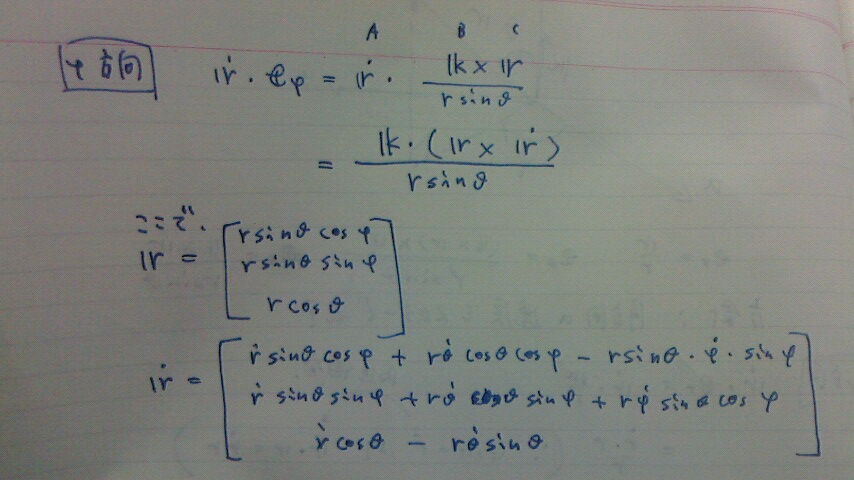 A B C
φ方向 𝕣̇ · 𝕖φ = 𝕣̇ · 𝕜 × 𝕣 / r sinθ
= 𝕜 · (𝕣 × 𝕣̇) / r sinθ
ここで.
𝕣 = [ r sinθ cosφ
r sinθ sinφ
r cosθ ]
𝕣̇ = [ ṙ sinθ cosφ + rθ̇ cosθ cosφ − r sinθ · φ̇ · sinφ
ṙ sinθ sinφ + rθ̇ cosθ sinφ + rφ̇ sinθ cosφ
ṙ cosθ − rθ̇ sinθ ]